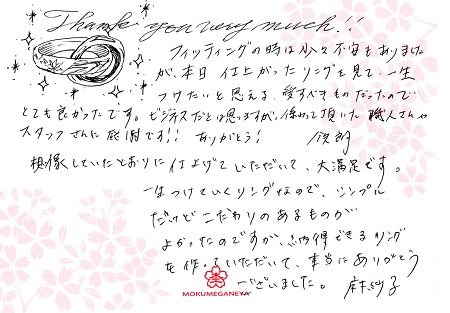 Thank you very much!!
フィッティングの時は少々不安もありました
が、本日 仕上がったリングを見て、一生
つけたいと思える、愛すべきものだったので
とても良かったです。ビジネスだとは思いますが、係わって頂いた職人さんや
スタッフさんに感謝です!! ありがとう!
想像していたとおりに仕上げていただいて、大満足です。
一生つけていくリングなので、シンプル
だけどこだわりのあるものが
よかったのですが、納得できるリング
を作っていただいて、本当にありがとう
ございました。 麻紗子
MOKUMEGANEYA